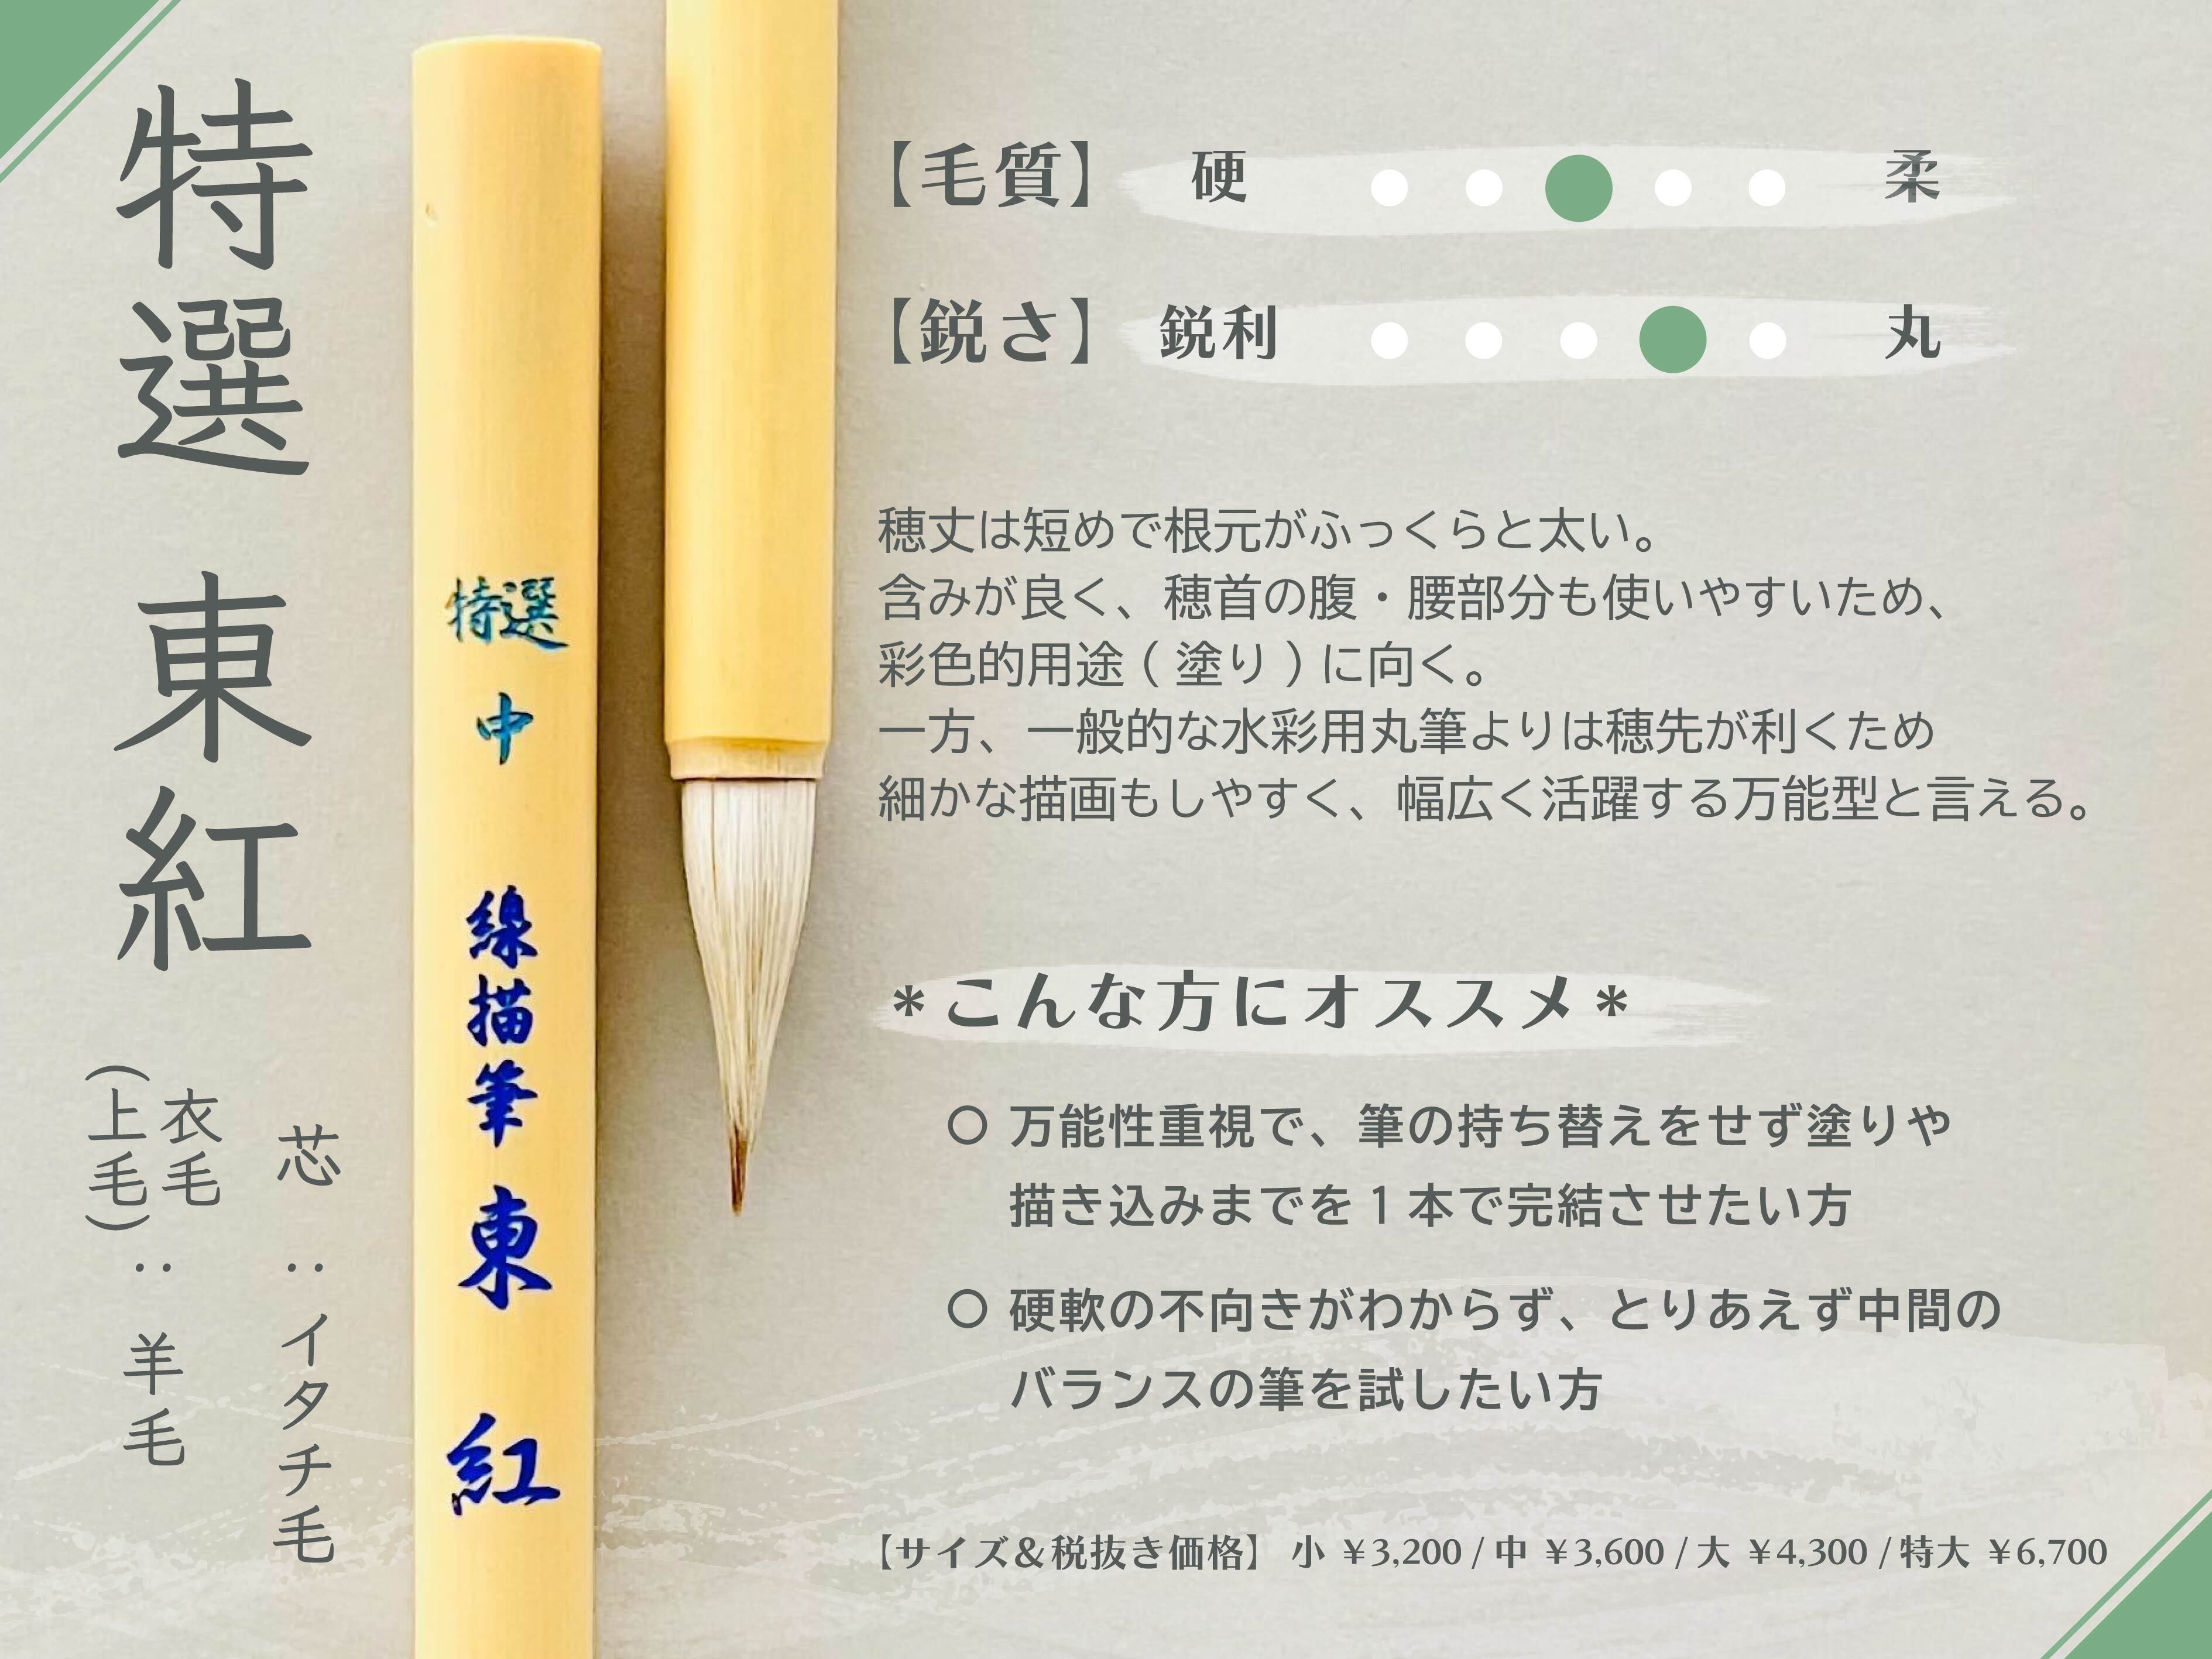 特選 東紅
芯：イタチ毛
衣毛
(上毛)：羊毛
特選
中
線描筆 東紅
【毛質】 硬 柔
【鋭さ】 鋭利 丸
穂丈は短めで根元がふっくらと太い。
含みが良く、穂首の腹・腰部分も使いやすいため、
彩色的用途(塗り)に向く。
一方、一般的な水彩用丸筆よりは穂先が利くため
細かな描画もしやすく、幅広く活躍する万能型と言える。
*こんな方にオススメ*
○ 万能性重視で、筆の持ち替えをせず塗りや
描き込みまでを1本で完結させたい方
○ 硬軟の不向きがわからず、とりあえず中間の
バランスの筆を試したい方
【サイズ&税抜き価格】 小 ¥3,200 / 中 ¥3,600 / 大 ¥4,300 / 特大 ¥6,700